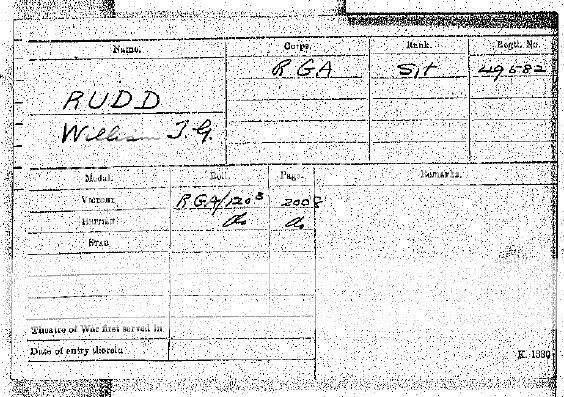 Name. Corps. Rank. Regtl. No.
RUDD R G A Sjt 49682
William J. G.
Medal. Roll. Page. Remarks.
Victory R.G.A/120 B 2008
British do. do.
Star
Theatre of War first served in
Date of entry therein
K. 1380